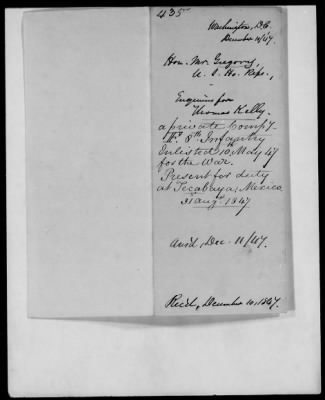 435
Washington, D.C.
December 10/47.
Hon. Mr. Gregory,
U. S. Ho. Reps.,
Enquires for
Thomas Kelly.
a private Compy
8th Infantry
Enlisted 10th May 47
for the War.
Present for duty
at Tacabaya, Mexico
31 Augt. 1847
Ansd, Dec. 11/47.
Recd, December 10, 1847.